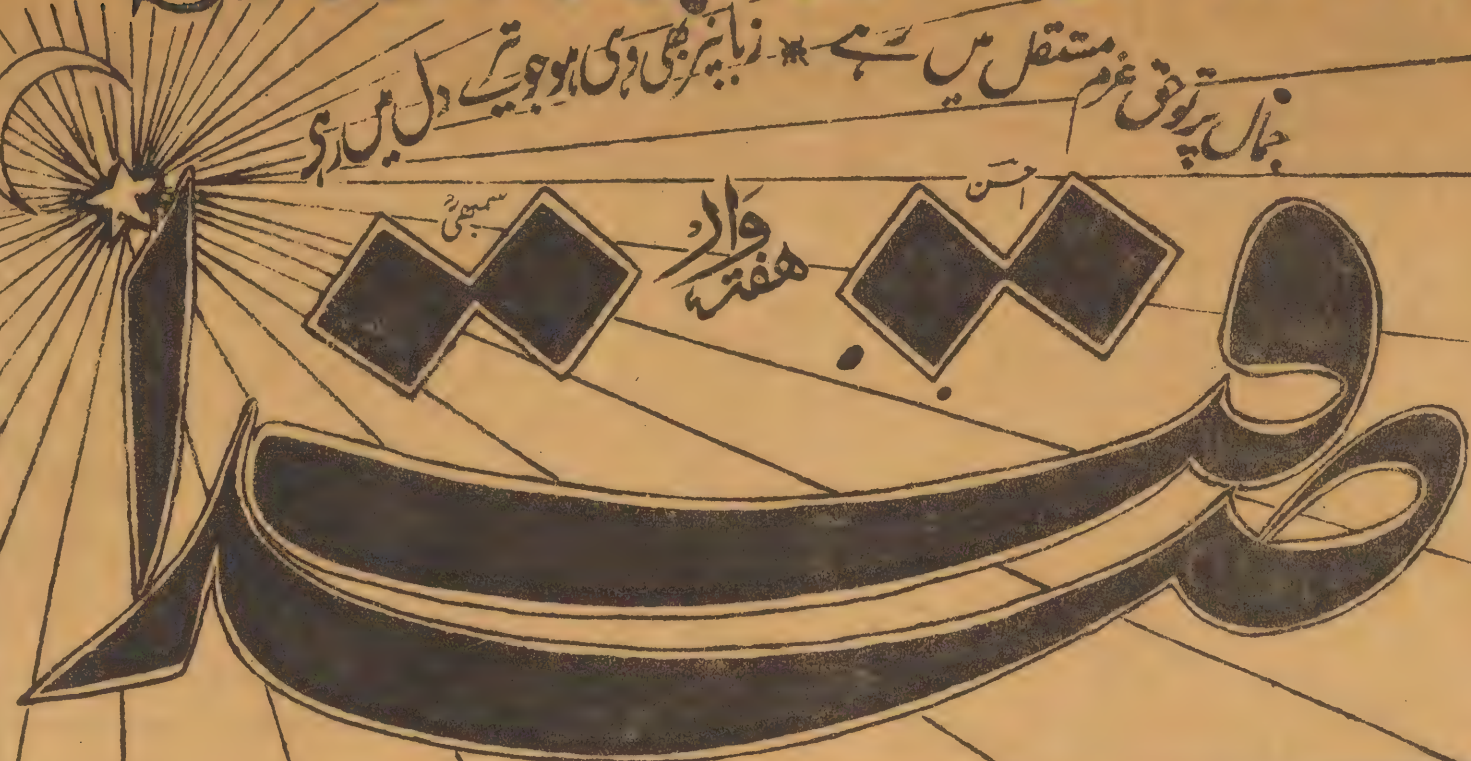 جمال پرتو حق عزم مستقل میں رہے * زبانپر بھی وہی ہو جو تیرے دل میں رہے
احسن
هفته وار
صداقت